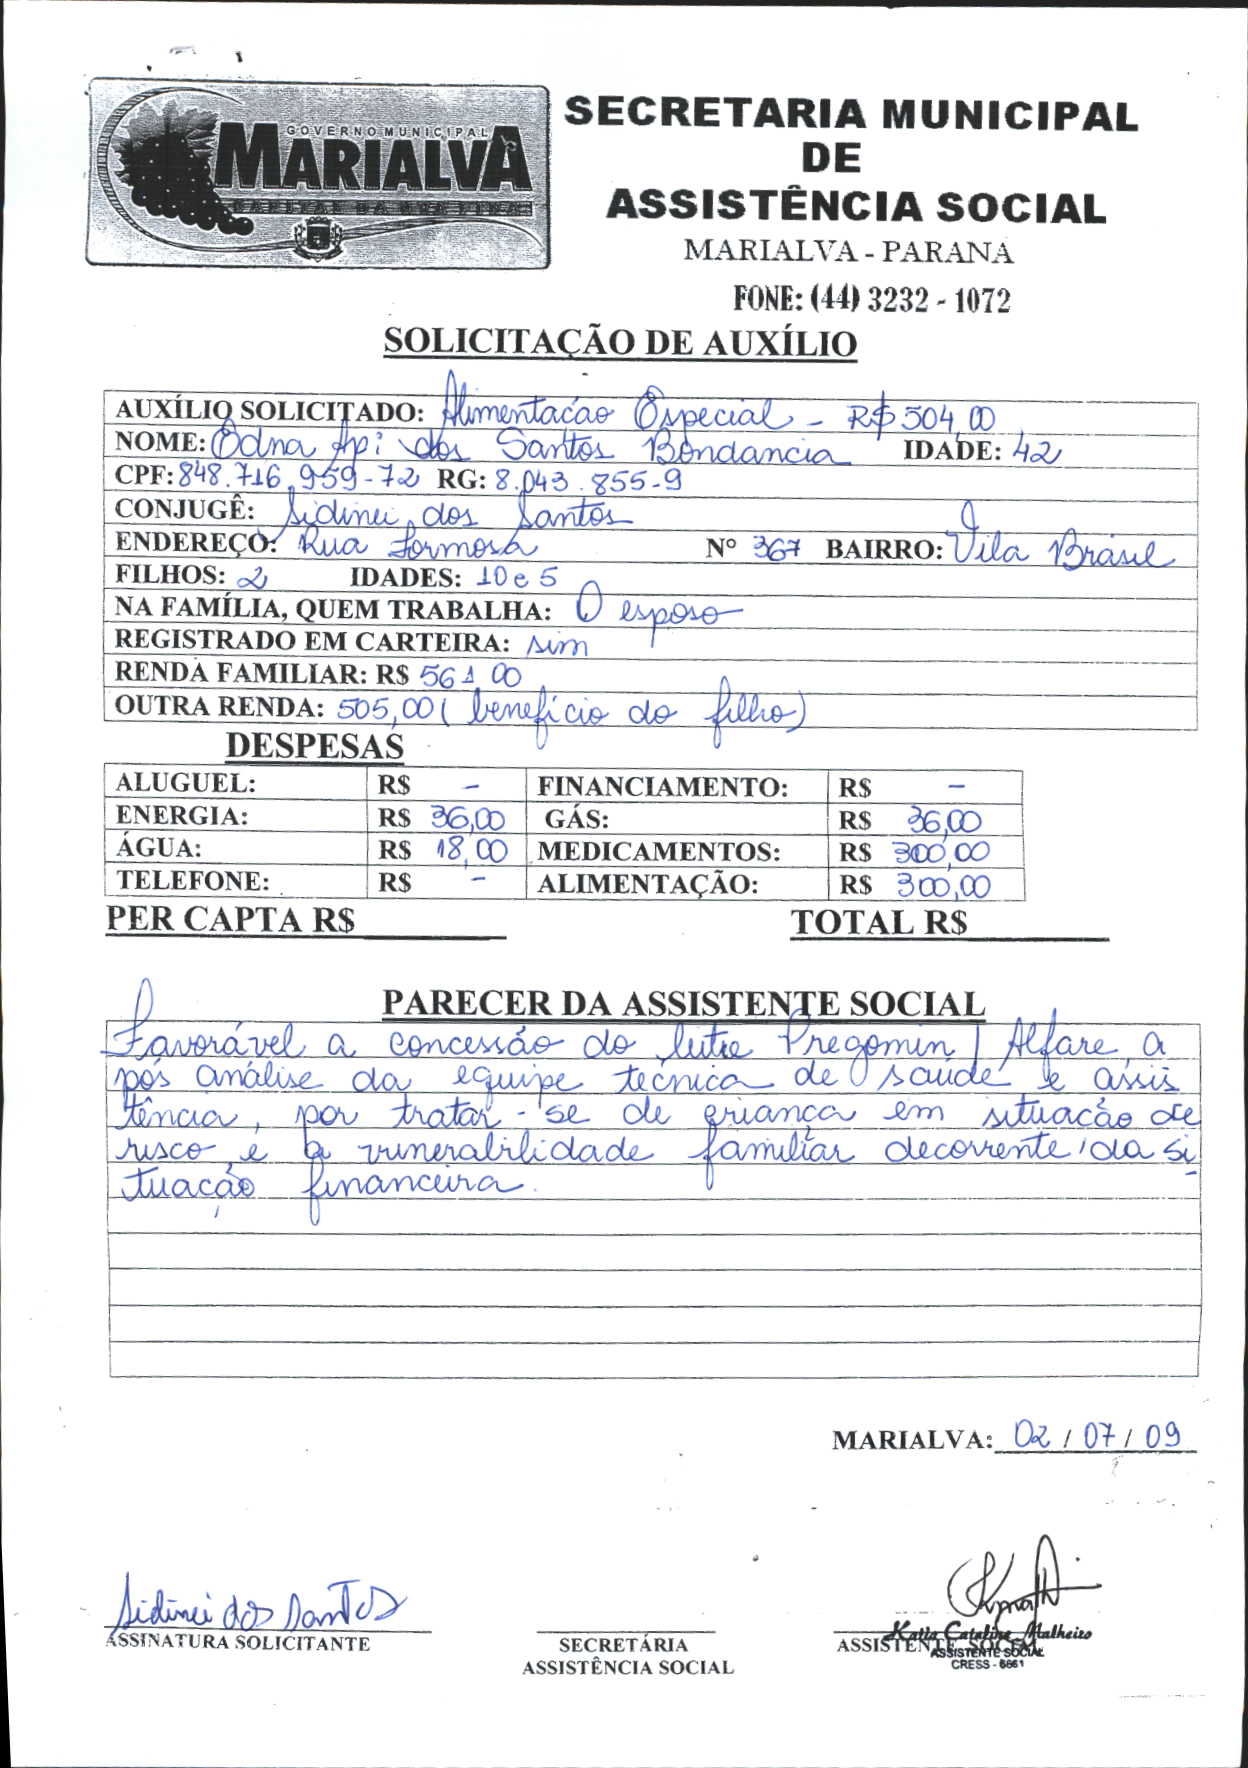 GOVERNO MUNICIPAL
MARIALVA
CAPITAL DA UVA FINA
SECRETARIA MUNICIPAL
DE
ASSISTÊNCIA SOCIAL
MARIALVA - PARANÁ
FONE: (44) 3232 - 1072
SOLICITAÇÃO DE AUXÍLIO
AUXÍLIO SOLICITADO: Alimentacão Especial - R$ 504,00
NOME: Edna Ap: dos Santos Bondancia IDADE: 42
CPF: 848.716.959-72 RG: 8.043.855-9
CONJUGÊ: Sidinei dos Santos
ENDEREÇO: Rua Formosa Nº 367 BAIRRO: Vila Brasil
FILHOS: 2 IDADES: 10 e 5
NA FAMÍLIA, QUEM TRABALHA: O esposo
REGISTRADO EM CARTEIRA: sim
RENDA FAMILIAR: R$ 561,00
OUTRA RENDA: 505,00 ( benefício do filho)
DESPESAS
ALUGUEL: R$ - FINANCIAMENTO: R$ -
ENERGIA: R$ 36,00 GÁS: R$ 36,00
ÁGUA: R$ 18,00 MEDICAMENTOS: R$ 300,00
TELEFONE: R$ - ALIMENTAÇÃO: R$ 300,00
PER CAPTA R$ TOTAL R$
PARECER DA ASSISTENTE SOCIAL
Favorável a concessão do leite Pregomin / Alfare, a
pós análise da equipe técnica de saúde e assis
tência, por tratar-se de criança em situação de
risco e a vunerabilidade familiar decorrente da si
tuação financeira.
MARIALVA: 02 / 07 / 09
Sidinei dos Santos
ASSINATURA SOLICITANTE
SECRETÁRIA
ASSISTÊNCIA SOCIAL
ASSISTENTE SOCIAL
Katia Cataline Malheiro
ASSISTENTE SOCIAL
CRESS - 6661